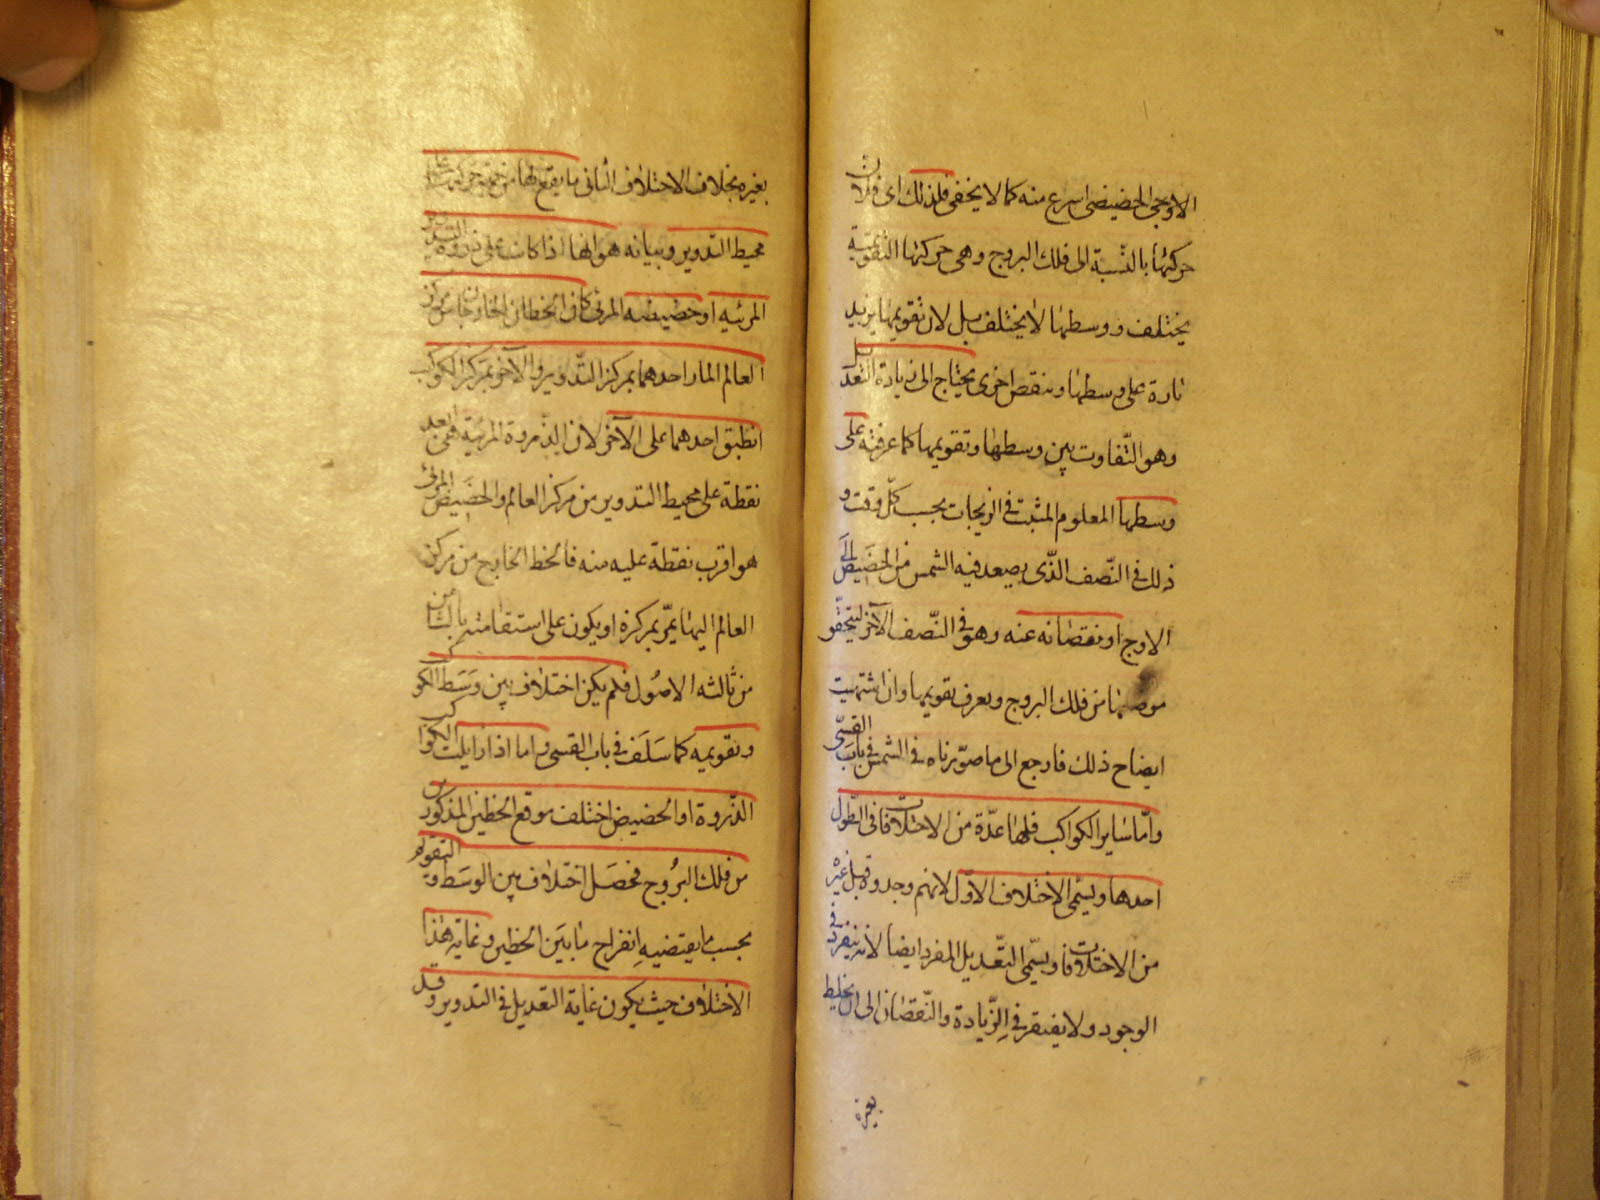 الاوجى الحضيضى اسرع منه كما لا يخفى فلذلك اى فلان
حركتها بالنسبة الى فلك البروج وهى حركتها التقويمية
يختلف ووسطها لا يختلف بل لان تقويمها يزيد
تارة على وسطها وينقص اخرى يحتاج الى زيادة التعديل
وهو التّفاوت بين وسطها وتقويمها كما عرفته على
وسطها المعلوم المثبت فى الزيجات بحسب كلّ وقت و
ذلك فى النّصف الذّى يصعد فيه الشمس من الحضيض الى
الاوج او نقصانه عنه وهو فى النّصف الآخر ليتحقّق
موضعها من فلك البروج ويعرف تقويمها وان اشتهيت
ايضاح ذلك فارجع الى ما صوّرناه فى الشمس فى باب القسىّ
وامّا ساير الكواكب فلها عدّة من الاختلافات فى الطّول
احدها ويسمّى الاختلاف الاوّل لانهم وجدوه قبل غيره
من الاختلافات ويسمّى التّعديل المفرد ايضا لانه ينفرد فى
الوجود ولا يفتقر فى الزّيادة والنّقصان الى ان يخلط
بغيره
بغيره بخلاف الاختلاف الثانى ما يقع لها من جهة حركتها على
محيط التدوير وبيانه هو انها اذا كانت على ذروة التدوير
المرئيه او حضيضه المرئى كان الخطان الخارجان من مركز
العالم المار احدهما بمركز التّدوير والآخر بمركز الكوكب
انطبق احدهما على الآخر لان الذروة المرئية هى ابعد
نقطة على محيط التدوير من مركز العالم والحضيض المرئى
هو اقرب نقطة عليه منه فالخط الخارج من مركز
العالم اليها يمّر بمركزه او يكون على استقامته بالثامن
من ثالثه الاصُول فلم يكن اختلاف بين وَسَط الكوكب
وتقويمه كما سَلَف فى باب القسى واما اذا زايلت الكواكب
الذّروة او الحضيض اختلف موقع الخطين المذكورين
من فلك البُروج فحصَل اختلاف بين الوسَط والتقويم
بحسب ما يقتضيهِ انفراج ما بَين الخطين وغاية هٰذا
الاختلاف حيث يكون غاية التعديل فى التدوير وقد